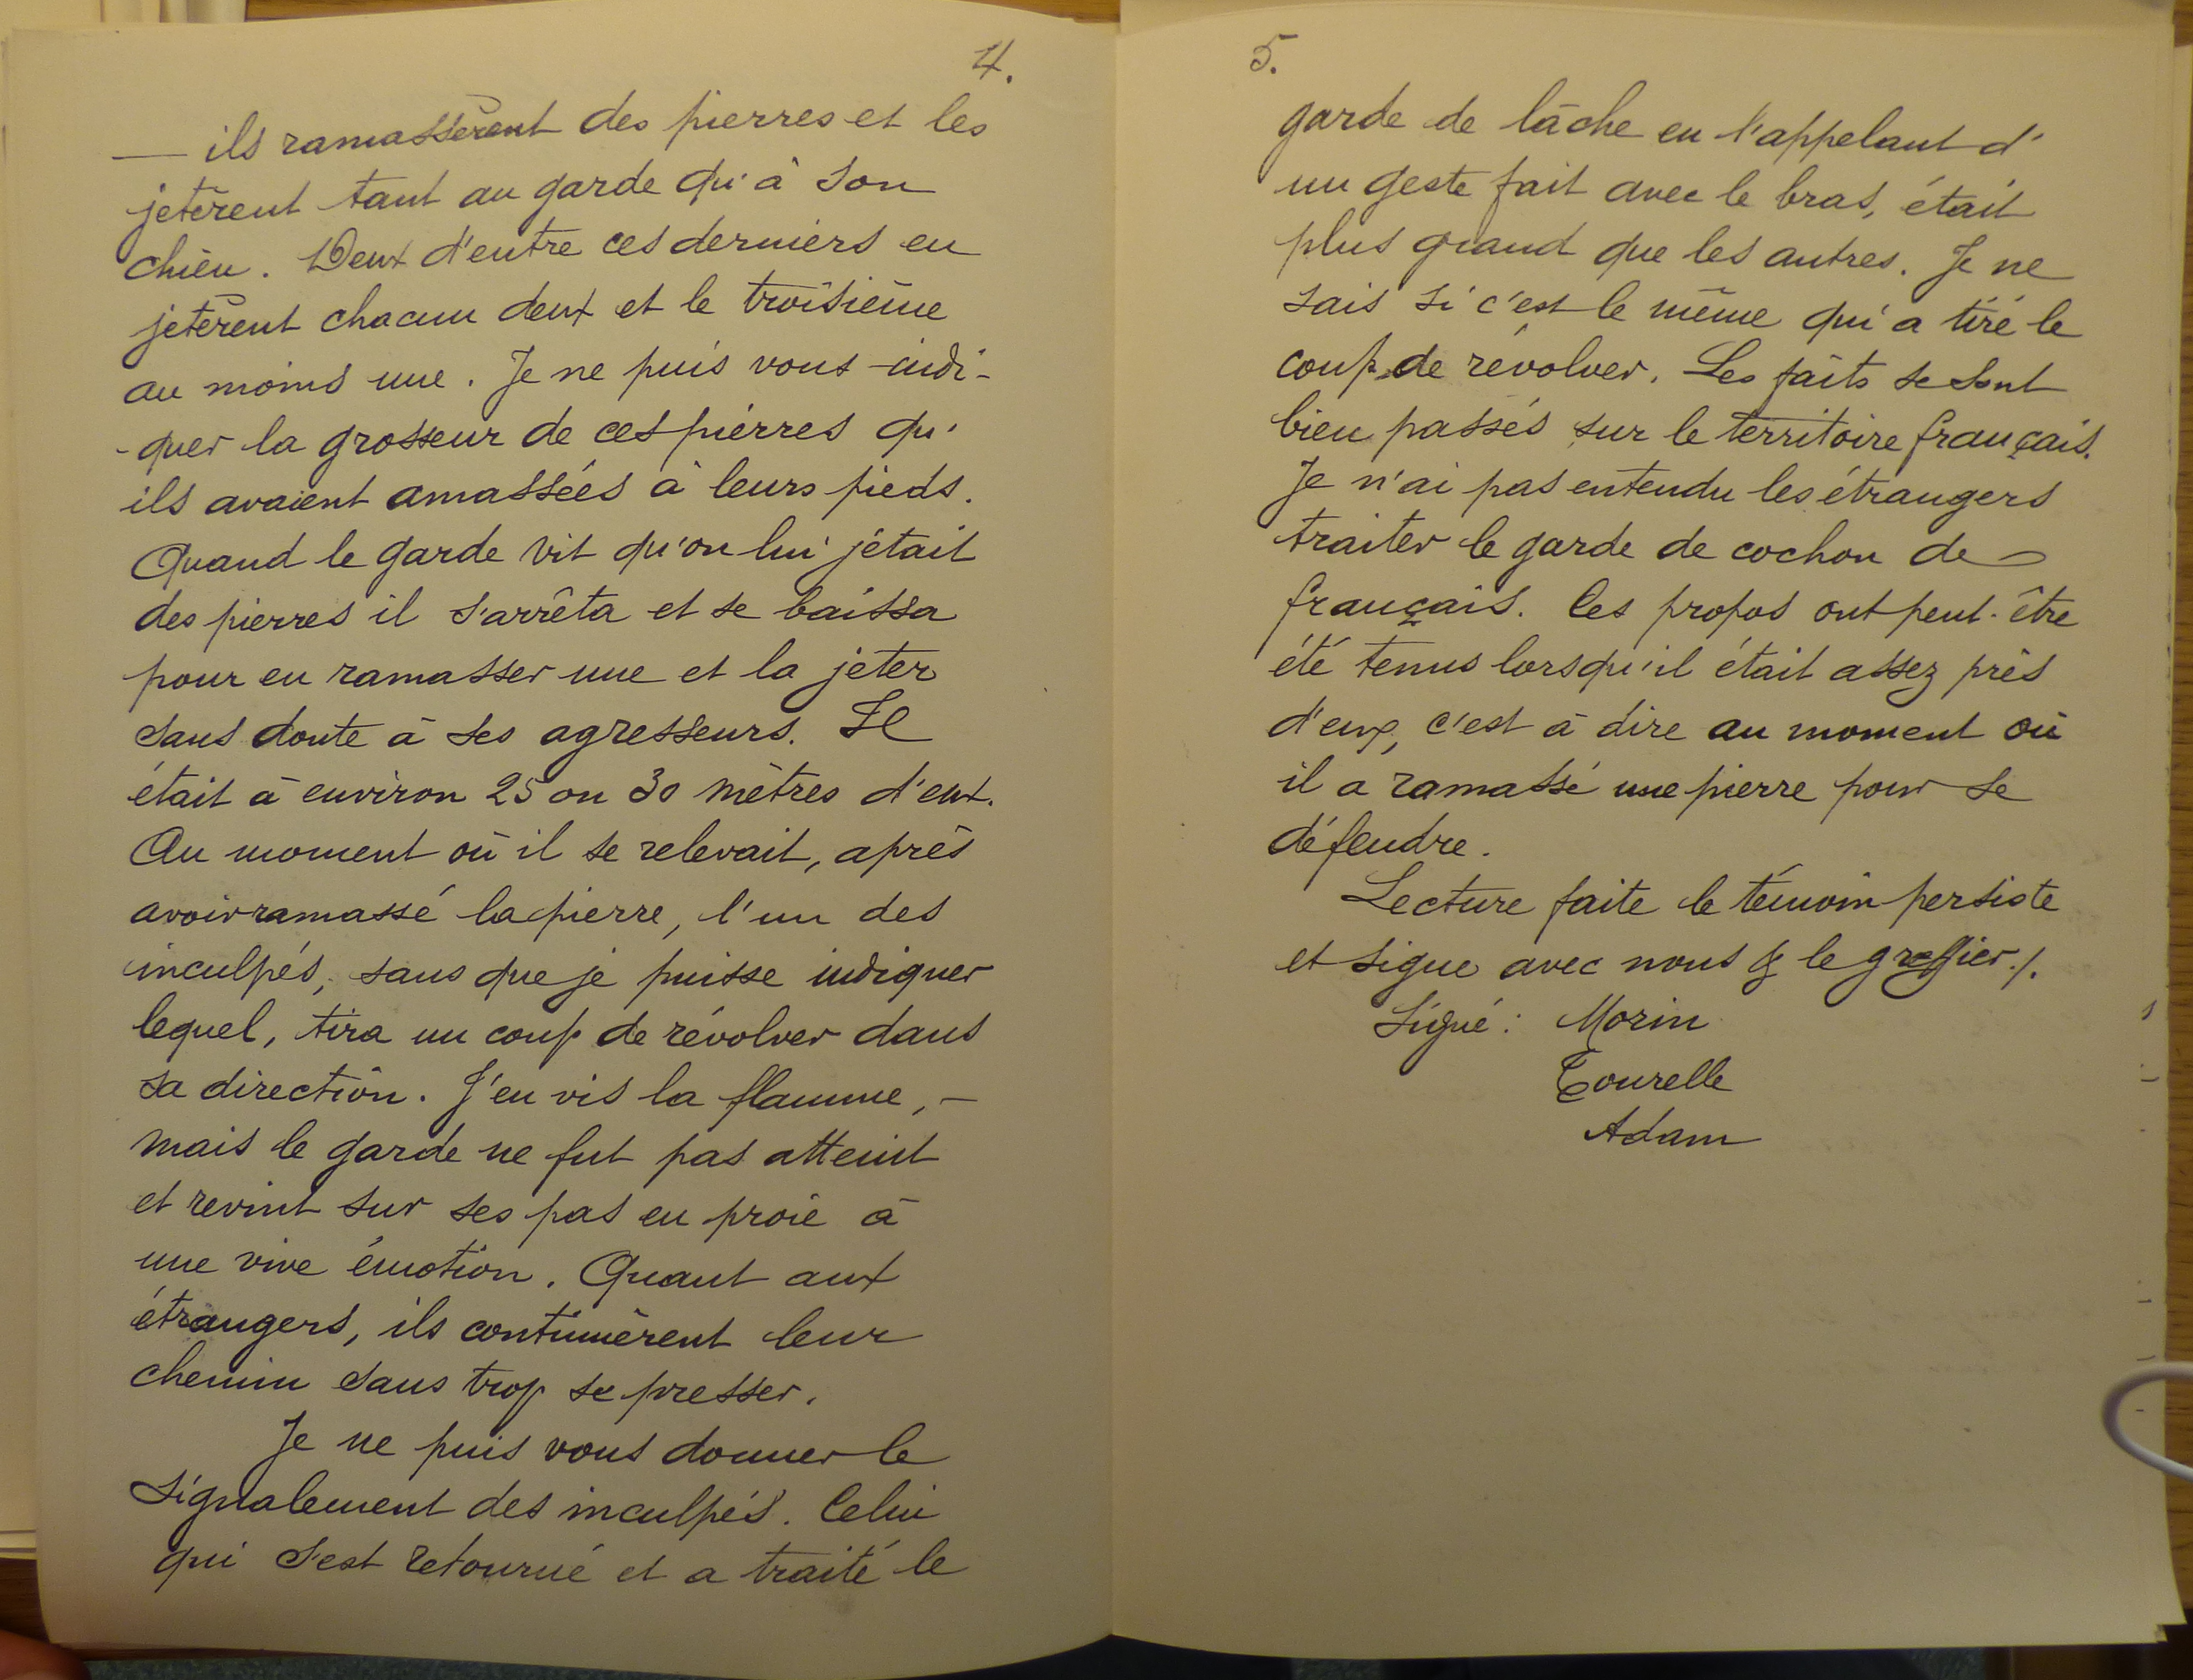 4.
— ils ramassèrent des pierres et les
jetèrent tant au garde qu'à son
chien. Deux d'entre ces derniers en
jetèrent chacun deux et le troisième
au moins une. Je ne puis vous indi-
-quer la grosseur de ces pierres qu'
ils avaient amassées à leurs pieds.
Quand le garde vit qu'on lui jétait
des pierres il s'arrêta et se baissa
pour en ramasser une et la jeter
sans doute à ses agresseurs. Il
était à environ 25 ou 30 mètres d'eux.
Au moment où il se relevait, après
avoir ramassé la pierre, l'un des
inculpés, sans que je puisse indiquer
lequel, tira un coup de révolver dans
sa direction. J'en vis la flamme, —
mais le garde ne fut pas atteint
et revint sur ses pas en proie à
une vive émotion. Quant aux
étrangers, ils continuèrent leur
chemin sans trop se presser.
Je ne puis vous donner le
signalement des inculpés. Celui
qui s'est retourné et a traité le
5.
garde de lâche en l'appelant d'
un geste fait avec le bras, était
plus grand que les autres. Je ne
sais si c'est le même qui a tiré le
coup de révolver. Les faits se sont
bien passés sur le territoire français.
Je n'ai pas entendu les étrangers
traiter le garde de cochon de
français. Ces propos ont peut-être
été tenus lorsqu'il était assez près
d'eux, c'est à dire au moment où
il a ramassé une pierre pour se
défendre.
Lecture faite le témoin persiste
et signe avec nous & le greffier./.
Signé: Morin
Tourelle
Adam